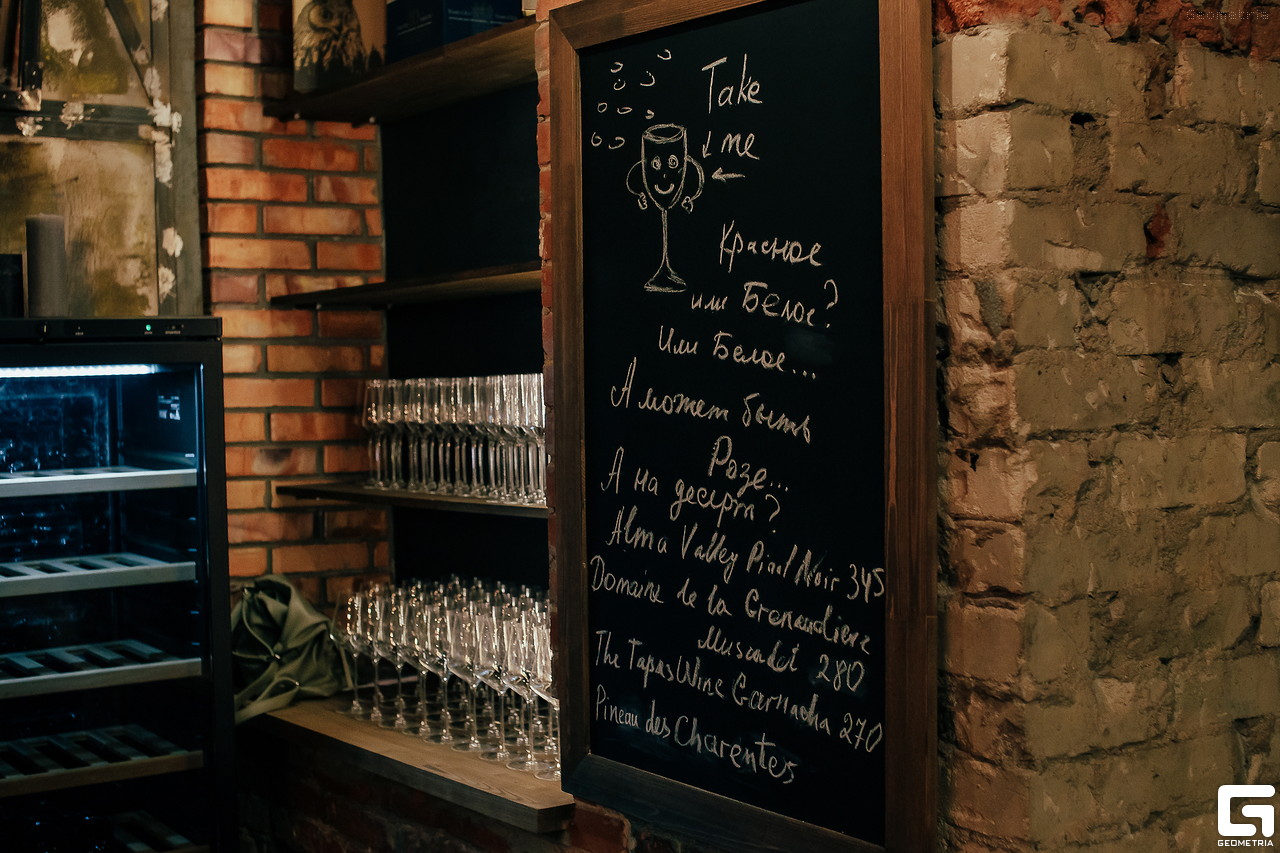 Geometria
Take
me
Красное
или Белое?
Или Белое...
А может быть
Розе...
А на десерт?
Alma Valley Pinot Noir 345
Domaine de la Grenaudiere
Muscadet 280
The Tapas Wine Garnacha 270
Pineau des Charentes
GEOMETRIA